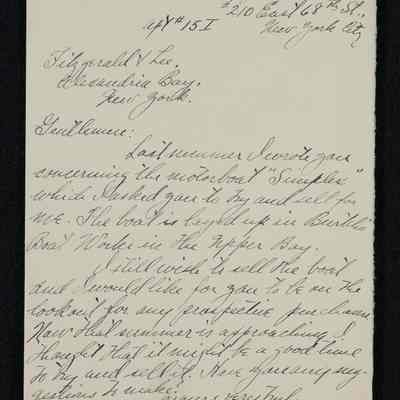 #210 East 68th St.,
apt #15I New York City
Fitzgerald & Lee.
Alexandria Bay.
New York.
Gentlemen:
Last summer I wrote you
concerning the motorboat "Simplex"
which I asked you to try and sell for
me. The boat is layed up in
Boat Works in the Upper Bay.
I still wish to sell the boat
and I would like for you to be on the
lookout for any prospective purchaser.
Now that summer is approaching I
thought that it might be a good time
to try and sell it. Have you any sug-
gestions to make?
Yours very truly